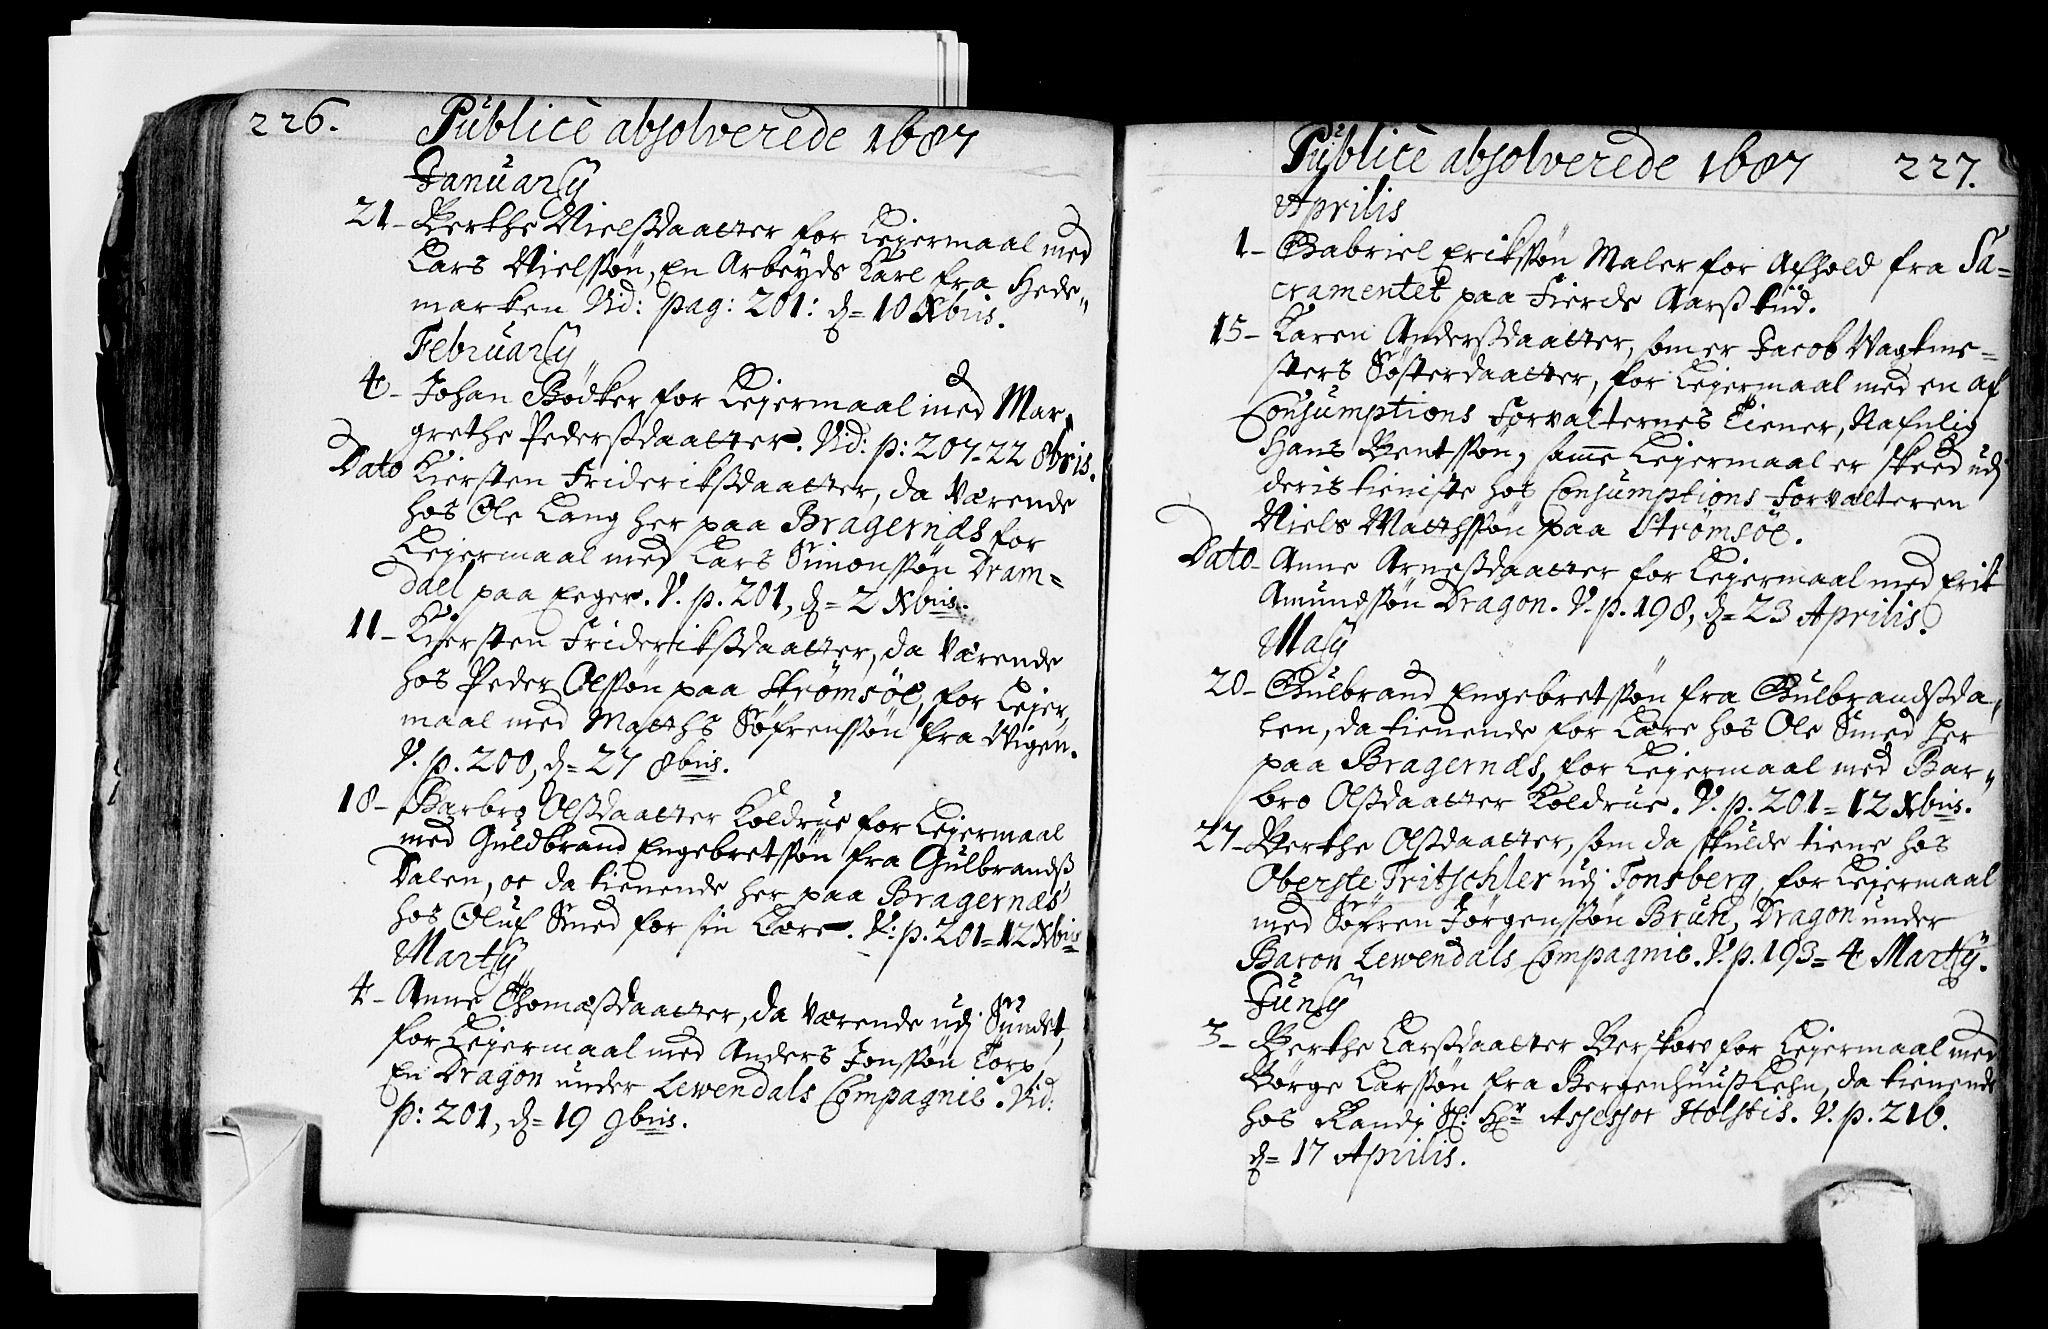 226.
Publicè absolverede 1687
Januarÿ
21- Berthe Nielsdaatter for Leiermaal med
Lars Nielssøn, En Arbeyds Karl fra Hede„
marken Vid: pag: 201: d= 10 Xbris.
Februarÿ
4- Johan Bødker for Leiermaal med Mar„
grethe Pedersdaatter. Vid: p: 207-22 8bris.
Dato Kiersten Frideriksdaatter, da værende
hos Ole Lang her paa Bragernæs for
Leiermaal med Lars Simonssøn Dram=
dael paa Eeger. V. p. 201, d= 2 Xbris.
11- Kiersten Frideriksdaatter, da værende
hos Peder Olssøn paa Strømsöe, for Leier„
maal med Matths Söfrenssøn fra Wigen.
V. p. 200, d= 27 8bris.
18- Barbro Olsdaatter Koldrue for Leiermaal
med Guldbrand Engebretssøn fra Gulbrands
Dalen, oc da tienende her paa Bragernæs
hos Oluf Smed for sin Lære. V: p. 201=12 Xbris
Martÿ
4- Anne Thomæsdaatter, da værende udj Sundet,
for Leiermaal med Anders Jonssøn Torp
En Dragon under Lewendals Compagnie. Vid:
p: 201, d= 19 9bris.
Publicè absolverede 1687
227.
Aprilis
1- Gabriel Erikssøn Maler for Afhold fra Sa=
cramentet paa Fierde Aars tiid.
15- Karen Andersdaatter, som er Jacob Vagtme=
sters Søsterdaatter, for Leiermaal med en af
Consumptions Forvalternes Tiener, Nafnlig
Hans Bentssøn, samme Leiermaal er skeed udj
deris tieniste hos Consumptions Forvalteren
Niels Matthssøn paa Strømsöe.
Dato- Anne Arnesdaatter for Leiermaal med Erik
Amundssøn Dragon. V. p. 198, d= 23 Aprilis.
Maÿ
20- Gulbrand Engebretssøn fra Gulbrandsda„
len, da tienende for Lære hos Ole Smed her
paa Bragernæs, for Leiermaal med Bar„
bro Olsdaatter Koldrue. V. p. 201= 12 Xbris.
27- Berthe Olsdaatter, som da skulde tiene hos
Oberste Tritschler udj Tonsberg, for Leiermaal
med Söfren Jörgenssøn Brun, Dragon under
Baron Lewendals Compagnie. V. p. 193= 4 Martÿ.
Junÿ
3- Berthe Larsdaatter Berskore for Leiermaal med
Børge Larssøn fra Bergenhuus Lehn, da tienende
hos Randj Sl: Hr Assessor Holstis. V. p. 216.
d= 17 Aprilis.